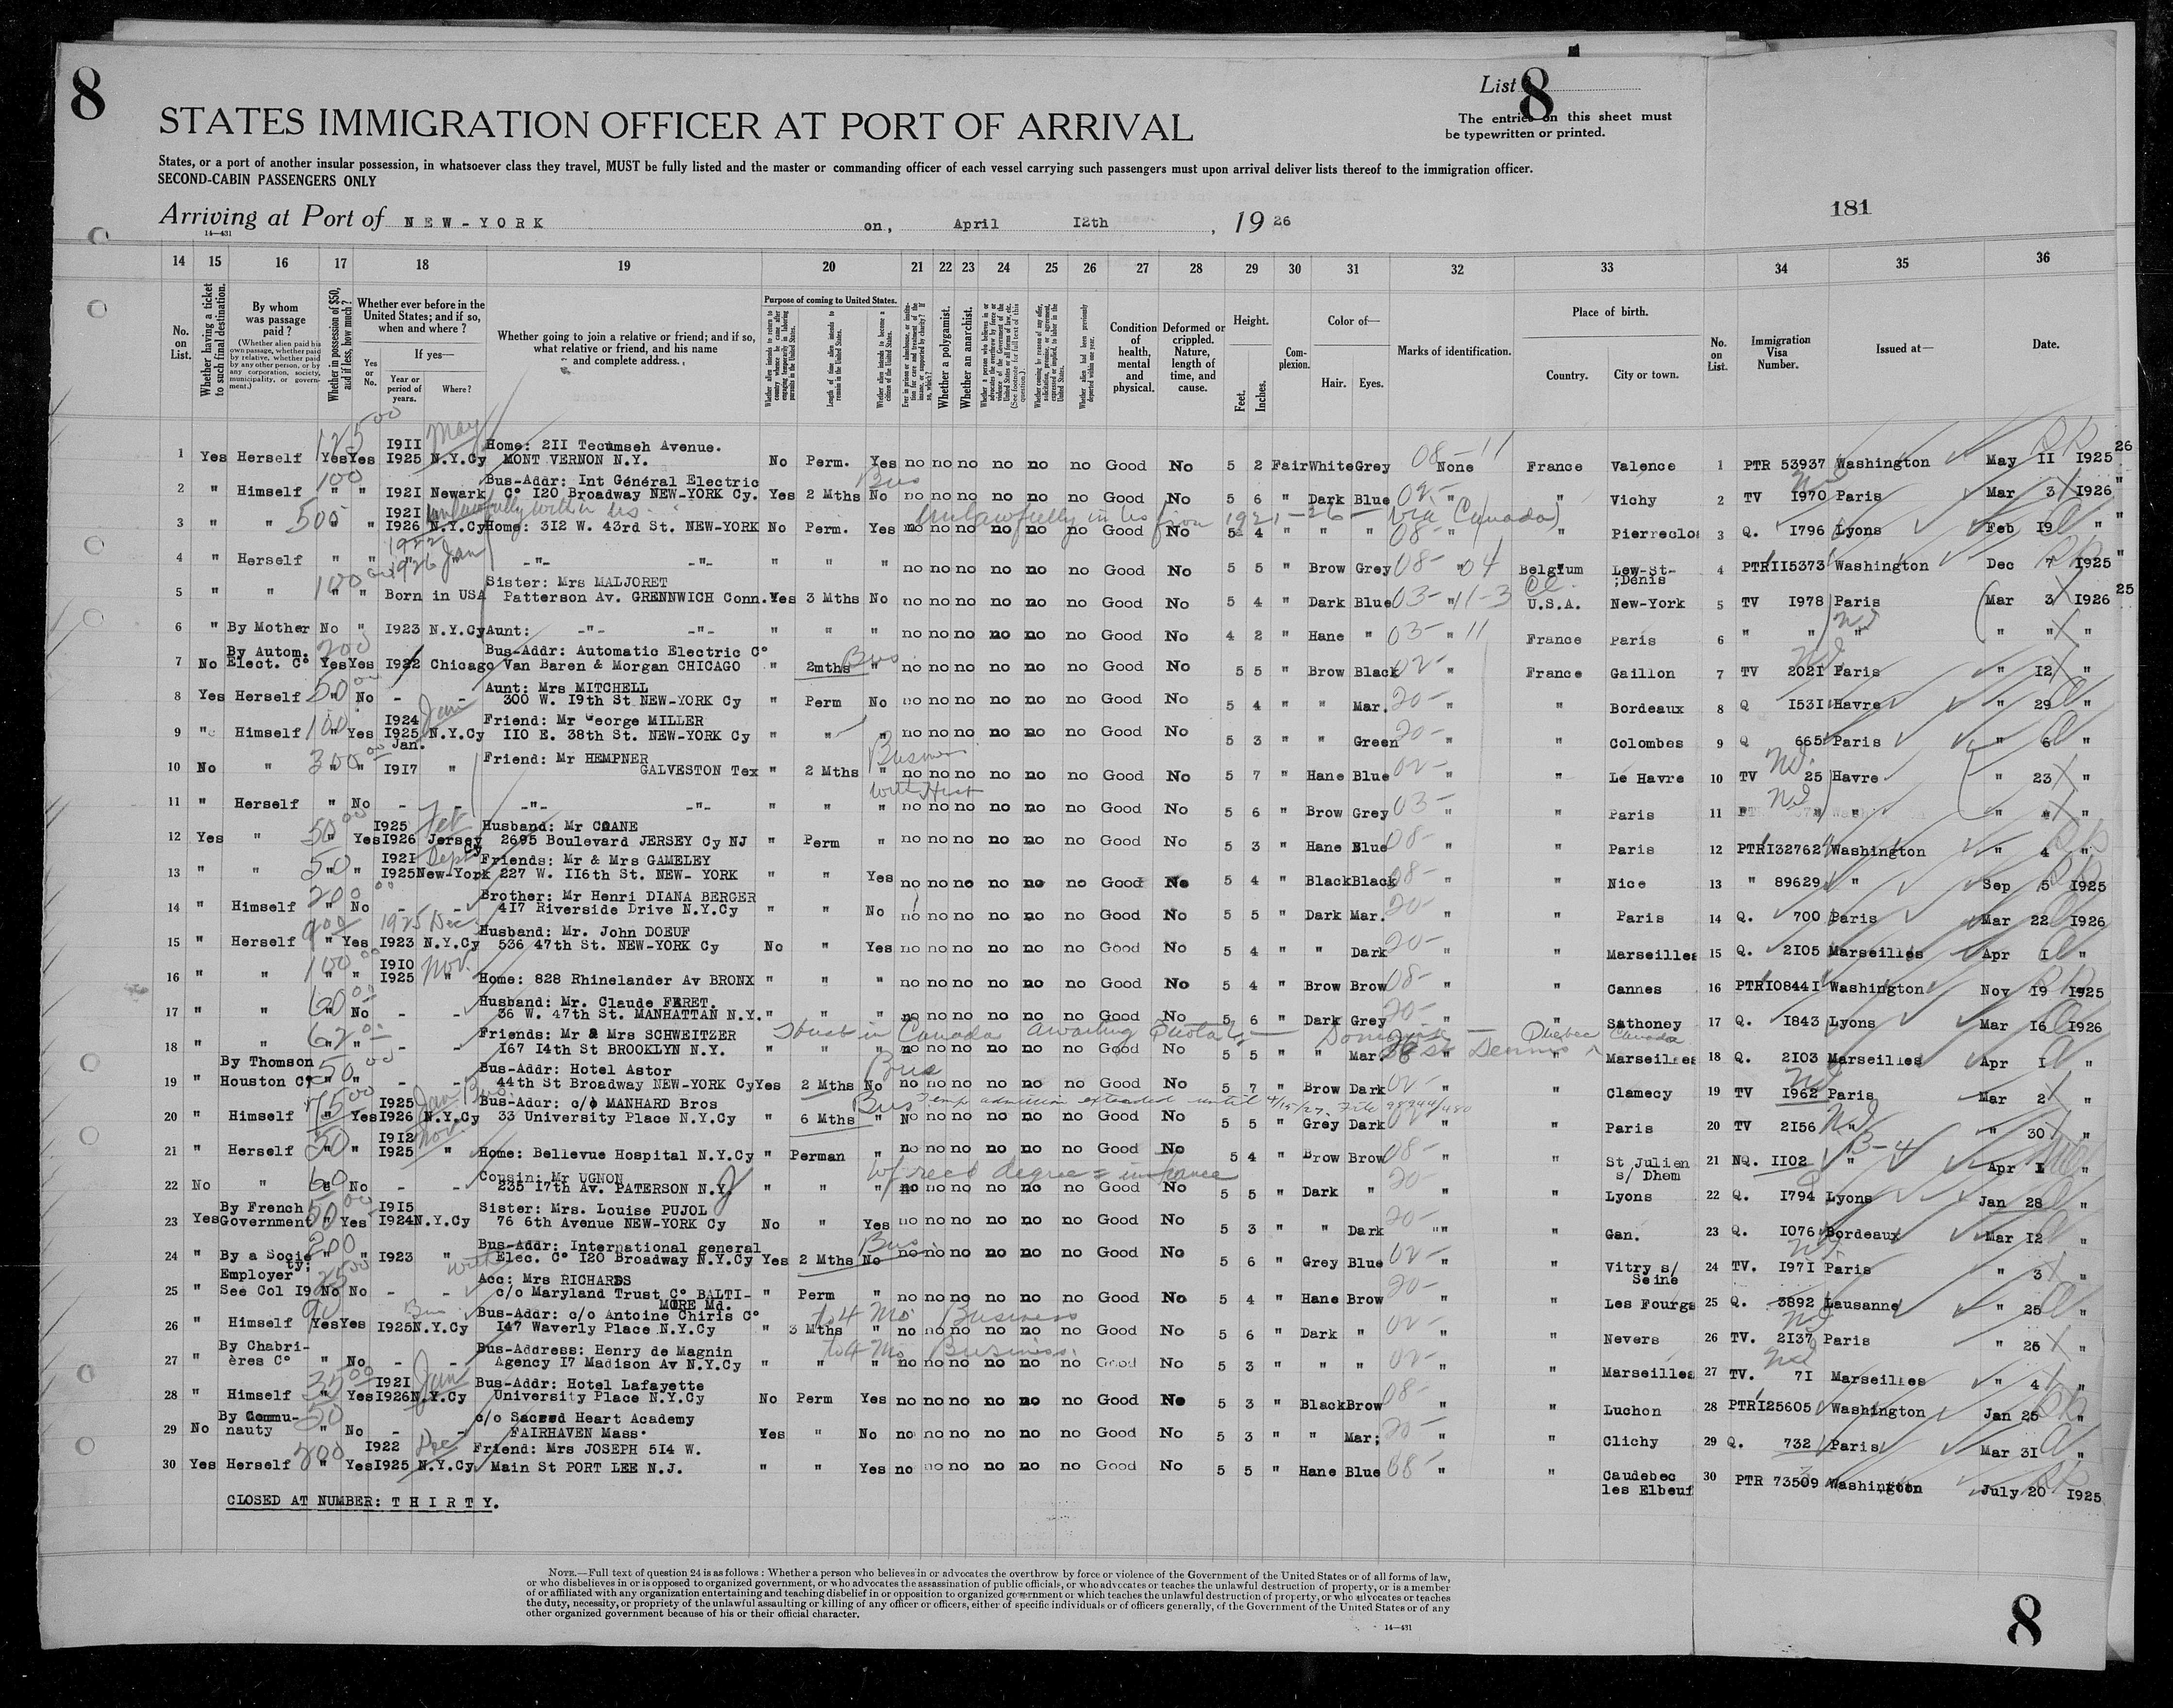 8
List 8
The entries on this sheet must
be typewritten or printed.
STATES IMMIGRATION OFFICER AT PORT OF ARRIVAL
States, or a port of another insular possession, in whatsoever class they travel, MUST be fully listed and the master or commanding officer of each vessel carrying such passengers must upon arrival deliver lists thereof to the immigration officer.
SECOND-CABIN PASSENGERS ONLY
181
Arriving at Port of NEW-YORK on, April I2th, 19 26
14—431
14 15 16 17 18 19 20 21 22 23 24 25 26 27 28 29 30 31 32 33 34 35 36
No. on List.
Whether having a ticket to such final destination.
By whom was passage paid?
(Whether alien paid his own passage, whether paid by relative, whether paid by any other person, or by any corporation, society, municipality, or government.)
Whether in possession of $50, and if less, how much?
Whether ever before in the United States; and if so, when and where?
Yes or No.
If yes—
Year or period of years.
Where?
Whether going to join a relative or friend; and if so, what relative or friend, and his name and complete address.
Purpose of coming to United States.
Length of time alien intends to remain in the United States.
Whether alien intends to become a citizen of the United States.
Whether a polygamist.
Whether an anarchist.
Condition of health, mental and physical.
Deformed or crippled. Nature, length of time, and cause.
Height.
Feet.
Inches.
Complexion.
Color of—
Hair.
Eyes.
Marks of identification.
Place of birth.
Country.
City or town.
No. on List.
Immigration Visa Number.
Issued at—
Date.
1 Yes Herself 125 00 Yes Yes I9II I925 May N.Y.Cy Home: 2II Tecumseh Avenue. MONT VERNON N.Y. No Perm. Yes no no no no no no Good No 5 2 Fair White Grey 08- 11 None France Valence 1 PTR 53937 Washington May II I925 26
2 " Himself 100 " " I92I Newark Bus-Addr: Int Général Electric C° I20 Broadway NEW-YORK Cy. Yes 2 Mths No Bus no no no no no no Good No 5 6 " Dark Blue 02- " " Vichy 2 TV I970 Paris Mar 3 I926 "
3 " " 500 " " I92I I926 N.Y.Cy unlawfully within US. Home: 3I2 W. 43rd St. NEW-YORK No Perm. Yes no no no no no no Good No Unlawfully in US from 1921-26 - via Canada 5 4 " " " 08- " " Pierreclos 3 Q. I796 Lyons Feb I9 " "
4 " Herself " " 1922 1926 Jan -"- -"- " " " no no no no no no Good No 5 5 " Brow Grey 08- " 04 Belgium Lew-St-Denis 4 PTRII5373 Washington Dec 7 I925 "
5 " " 100 " " Born in USA Sister: Mrs MALJORET Patterson Av. GRENNWICH Conn. Yes 3 Mths No no no no no no no Good No 5 4 " Dark Blue 03- " 11-3 U.S.A. New-York 5 TV I978 Paris Mar 3 I926 25
6 " By Mother No " I923 N.Y.Cy Aunt: -"- -"- " " " no no no no no no Good No 4 2 " Hane " 03- " 11 France Paris 6 " " " " " "
7 No By Autom. Elect. C° 200 Yes Yes I922 Chicago Bus-Addr: Automatic Electric C° Van Baren & Morgan CHICAGO " 2mths " Bus no no no no no no Good No 5 5 " Brow Black 02- " France Gaillon 7 TV 202I Paris " I2 "
8 Yes Herself 50 00 " No - - Aunt: Mrs MITCHELL 300 W. I9th St NEW-YORK Cy " Perm No no no no no no no Good No 5 4 " " Mar. 20- " " Bordeaux 8 Q I53I Havre " 29 "
9 " Himself 100 " Yes I924 I925 Jan N.Y.Cy Friend: Mr George MILLER II0 E. 38th St. NEW-YORK Cy " " " no no no no no no Good No 5 3 " " Green 20- " " Colombes 9 Q 665 Paris " 6 "
10 No " 300 00 " " Jan. I9I7 " Friend: Mr HEMPNER GALVESTON Tex " 2 Mths " Business no no no no no no Good No 5 7 " Hane Blue 02- " " Le Havre 10 TV 25 Havre " 23 "
11 " Herself " No - - -"- -"- " " " with Husb no no no no no no Good No 5 6 " Brow Grey 03- " " Paris 11 " " " " "
12 Yes " 50 00 " Yes I925 I926 Feb Jersey Cy Husband: Mr CRANE 2695 Boulevard JERSEY Cy NJ " Perm " no no no no no no Good No 5 3 " Hane Blue 08- " " Paris 12 PTRI32762 Washington " 4 "
13 " " 50 " " I92I I925 Sept New-York Friends: Mr & Mrs GAMELEY 227 W. II6th St. NEW- YORK " " Yes no no no no no no Good No 5 4 " Black Black 08- " " Nice 13 " 89629 " Sep 5 I925
14 " Himself 200 00 " No - - Brother: Mr Henri DIANA BERGER 4I7 Riverside Drive N.Y.Cy " " No no no no no no no Good No 5 5 " Dark Mar. 20- " " Paris 14 Q. 700 Paris Mar 22 I926
15 " Herself 900 " Yes 1925 Dec I923 N.Y.Cy Husband: Mr. John DOEUF 536 47th St. NEW-YORK Cy No " Yes no no no no no no Good No 5 4 " " Dark 20- " " Marseilles 15 Q. 2I05 Marseilles Apr I "
16 " " 100 00 " " I9I0 I925 Nov. " Home: 828 Rhinelander Av BRONX " " " no no no no no no Good No 5 4 " Brow Brow 08- " " Cannes 16 PTRI0844I Washington Nov I9 I925
17 " " 60 00 " No - - Husband: Mr. Claude FERET. 36 W. 47th St. MANHATTAN N.Y. " " " no no no no no no Good No 5 6 " Dark Grey 20- " " Sathoney 17 Q. I843 Lyons Mar I6 I926
18 " " 62 00 " " - - Friends: Mr & Mrs SCHWEITZER I67 I4th St BROOKLYN N.Y. " " " Husb in Canada awaiting Quota Quebec Canada no no no no no no Good No 5 5 " " Mar. " " Marseilles 18 Q. 2I03 Marseilles Apr I "
19 " By Thomson Houston C° 50 00 " " - - Bus-Addr: Hotel Astor 44th St Broadway NEW-YORK Cy Yes 2 Mths No Bus no no no no no no Good No 5 7 " Brow Dark 02- " " Clamecy 19 TV I962 Paris Mar 2 "
20 " Himself 75 00 " Yes I925 I926 Jan Bus. N.Y.Cy Bus-Addr: c/o MANHARD Bros 33 University Place N.Y.Cy " 6 Mths " Bus Temp admission extended until 4/15/27. File 98944/480 No no no no no no Good No 5 5 " Grey Dark 02 " " Paris 20 TV 2I56 " " 30 "
21 " Herself 50 " " I9I2 I925 Nov. " Home: Bellevue Hospital N.Y.Cy " Perman " no no no no no no Good No 5 4 " Brow Brow 08- " " St Julien s/ Dhem 21 NQ. II02 " B-4 Apr I "
22 No " 60 " No - - Cousin: Mr UGNON 235 I7th Av. PATERSON N.Y. " " " no no no no no no Good No 5 5 " Dark " 20- " " Lyons 22 Q. I794 Lyons Jan 28 "
23 Yes By French Government 50 00 " Yes I9I5 I924 N.Y.Cy Sister: Mrs. Louise PUJOL 76 6th Avenue NEW-YORK Cy No " Yes no no no no no no Good No 5 3 " " Dark 20- "" " Gan. 23 Q. I076 Bordeaux Mar I2 "
24 " By a Socie ty; 200 " " I923 " Bus-Addr: International general Elec. C° I20 Broadway N.Y.Cy Yes 2 Mths No Bus no no no no no no Good No 5 6 " Grey Blue 02- " " Vitry s/ Seine 24 TV. I97I Paris " 3 "
25 " Employer See Col I9 25 00 No No - - with Acc: Mrs RICHARDS c/o Maryland Trust C° BALTI- MORE Md. " Perm " no no no no no no Good No 5 4 " Hane Brow 20- " " Les Fourgs 25 Q. 3892 Lausanne " 25 "
26 " Himself 90 Yes Yes I925 Bus N.Y.Cy Bus-Addr: c/o Antoine Chiris C° I47 Waverly Place N.Y.Cy " 3 Mths " to 4 Mo Business no no no no no no Good No 5 6 " Dark " 02- " " Nevers 26 TV. 2I37 Paris " 26 "
27 " By Chabri- ères C° " No - - Bus-Address: Henry de Magnin Agency I7 Madison Av N.Y.Cy " " " to 4 Mo Business. no no no no no no Good No 5 3 " " " 02- " " Marseilles 27 TV. 7I Marseilles " 4 "
28 " Himself 35 00 " Yes I92I I926 Jan N.Y.Cy Bus-Addr: Hotel Lafayette University Place N.Y.Cy No Perm Yes no no no no no no Good No 5 3 " Black Brow 08- " " Luchon 28 PTRI25605 Washington Jan 25 "
29 No By Commu- nauty 50 " No - - c/o Sacred Heart Academy FAIRHAVEN Mass. Yes " No no no no no no no Good No 5 3 " " Mar; 20- " " Clichy 29 Q. 732 Paris Mar 3I "
30 Yes Herself 200 " Yes I922 I925 Dec N.Y.Cy Friend: Mrs JOSEPH 5I4 W. Main St PORT LEE N.J. " " Yes no no no no no no Good No 5 5 " Hane Blue 08- " " Caudebec les Elbeuf 30 PTR 73509 Washington July 20 I925
CLOSED AT NUMBER: T H I R T Y.
NOTE.—Full text of question 24 is as follows: Whether a person who believes in or advocates the overthrow by force or violence of the Government of the United States or of all forms of law,
or who disbelieves in or is opposed to organized government, or who advocates the assassination of public officials, or who advocates or teaches the unlawful destruction of property, or is a member
of or affiliated with any organization entertaining and teaching disbelief in or opposition to organized government or which teaches the unlawful destruction of property, or who advocates or teaches
the duty, necessity, or propriety of the unlawful assaulting or killing of any officer or officers, either of specific individuals or of officers generally, of the Government of the United States or of any
other organized government because of his or their official character.
14—431
8